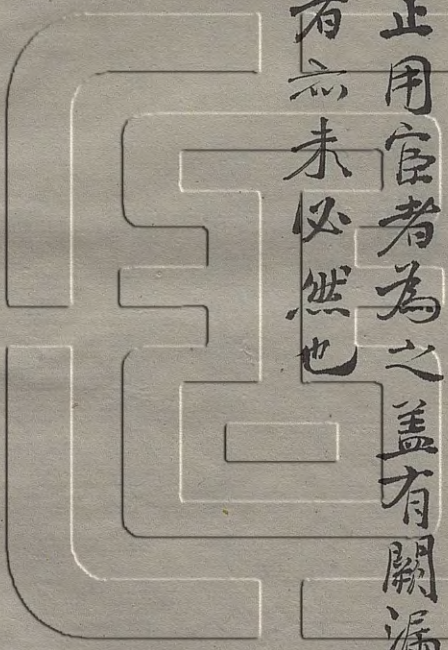 止用宦者為之盖有闕漏
者亦未必然也